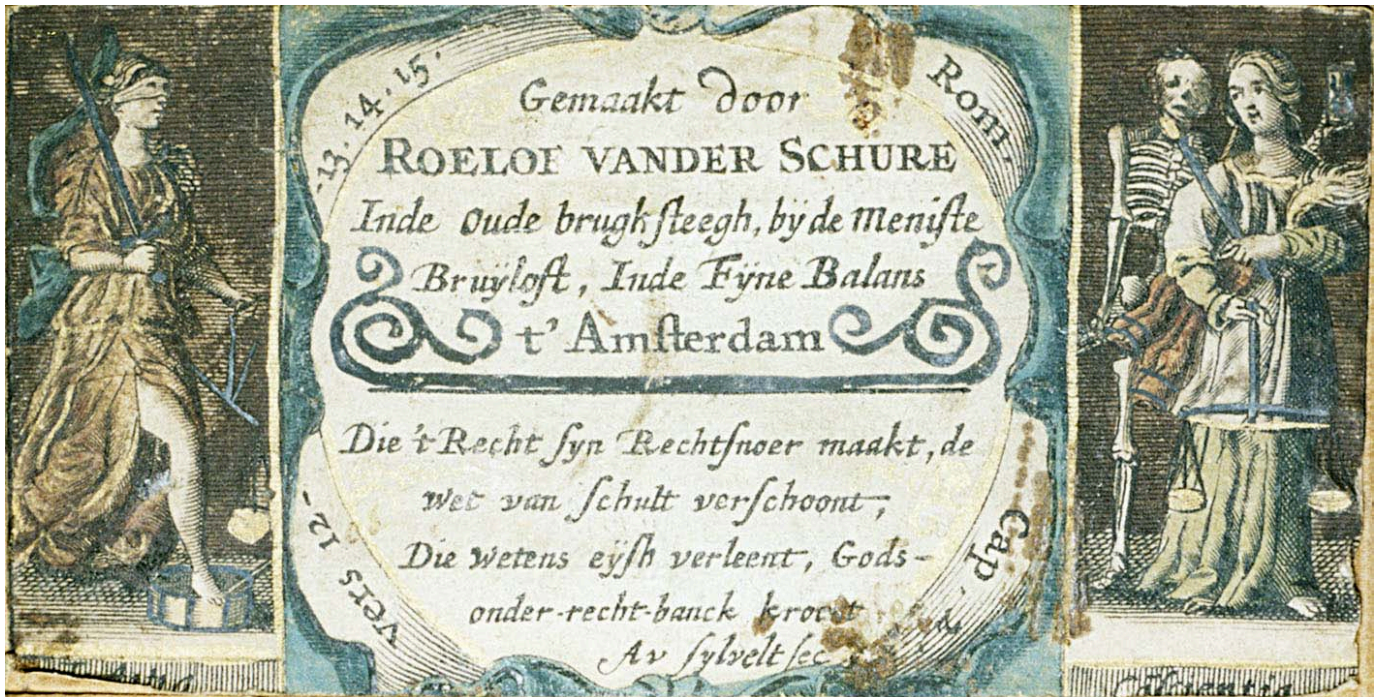 Gemaakt door
ROELOF VANDER SCHURE
Inde oude brugh steegh, bÿ de Meniste
Bruÿloft, Inde Fÿne Balans
t' Amsterdam
Die 't Recht syn Rechtsnoer maakt, de
wet van schult verschoont,
Die wetens eÿsh verleent, Gods-
onder-recht-banck kroont
Av sylvelt fec
Rom.
Cap
vers 12-
-13.14.15.